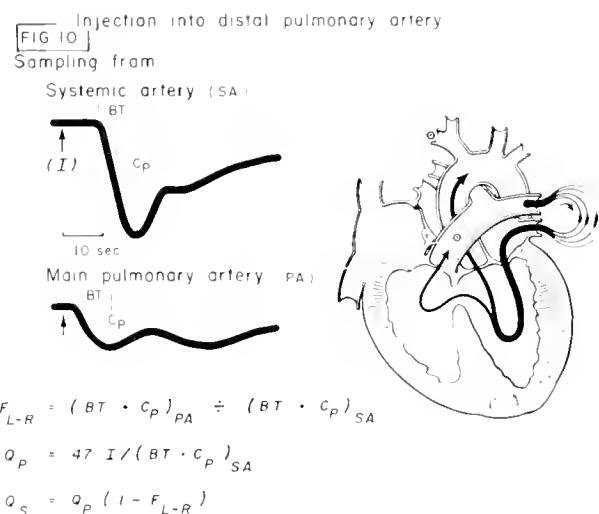 Injection into distal pulmonary artery
FIG 10
Sampling from
Systemic artery (SA)
BT
(I)
Cp
10 sec
Main pulmonary artery PA)
BT
Cp
F L-R = (BT · Cp) PA ÷ (BT · Cp) SA
Qp = 47 I/(BT · Cp) SA
Qs = Qp (1 - F L-R)